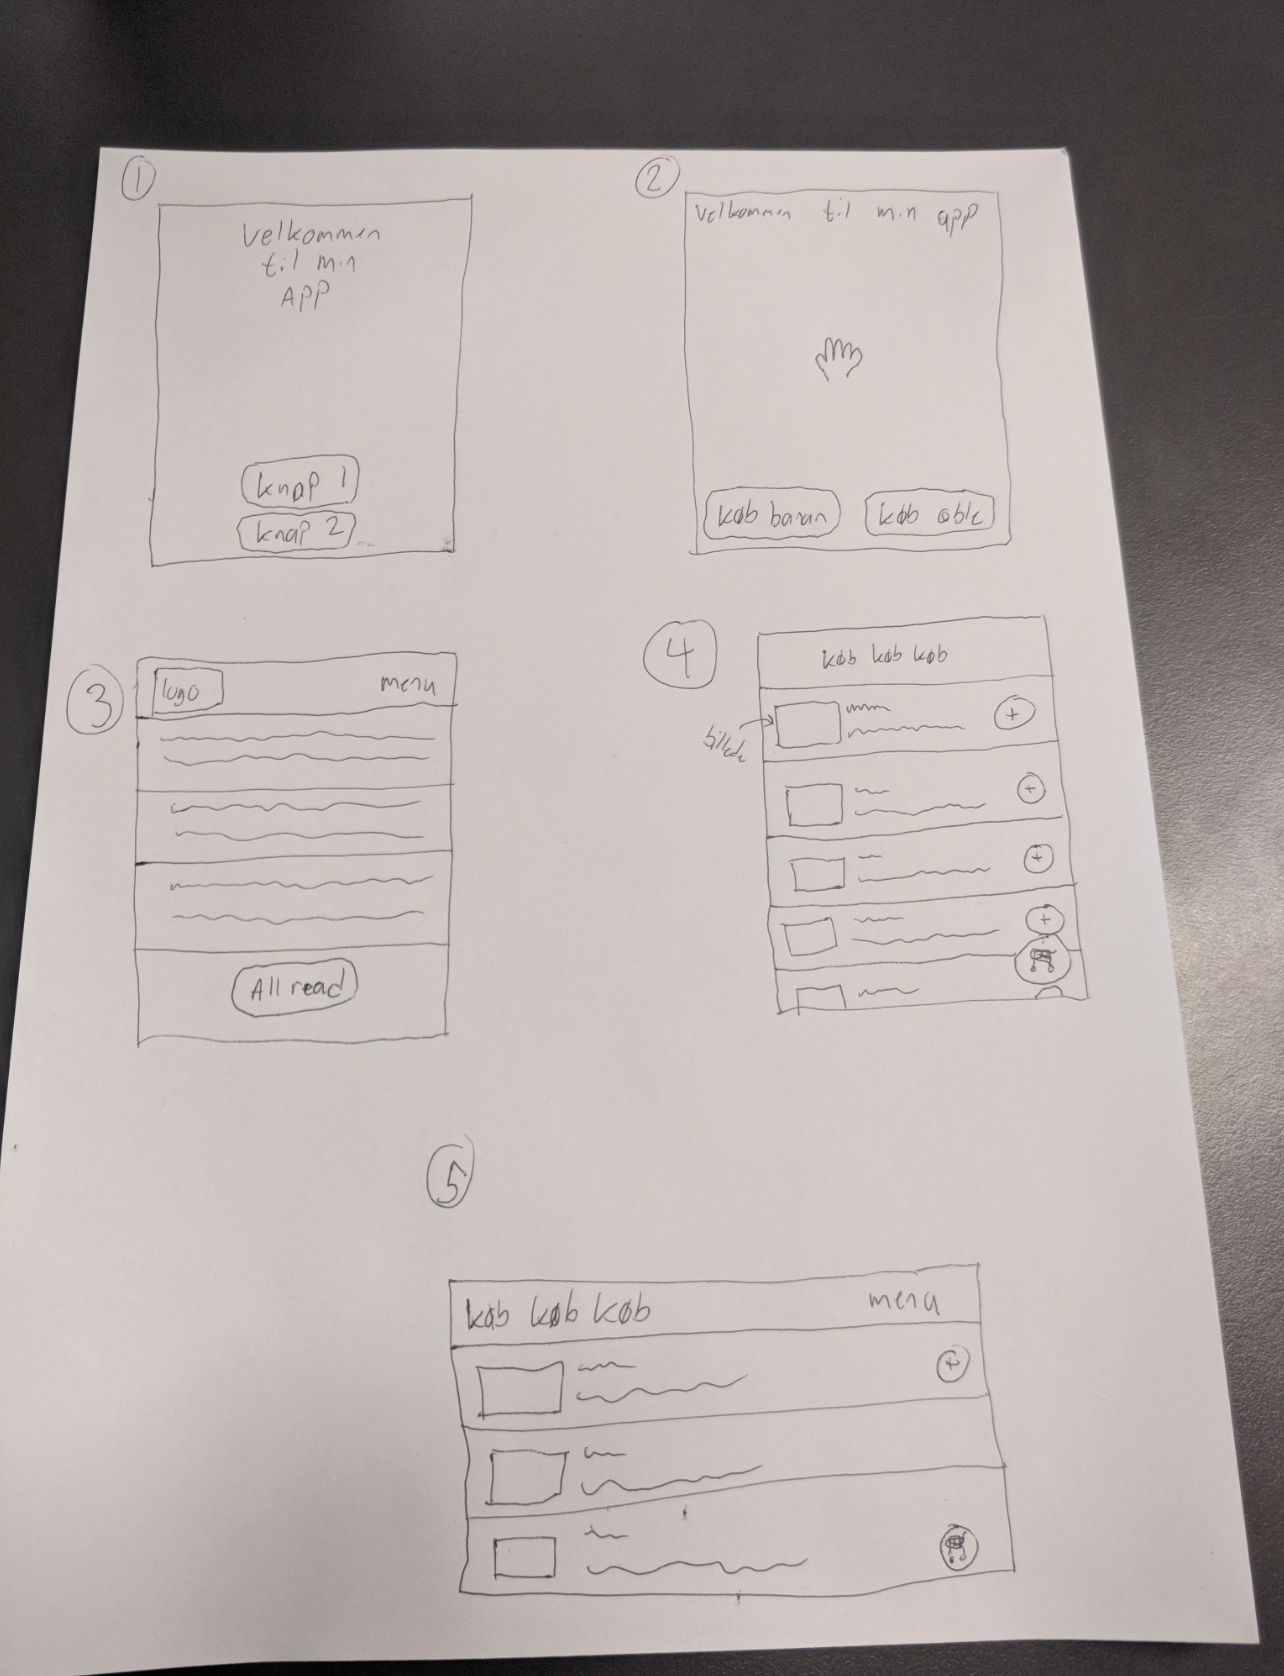 1
Velkommen
til min
APP
knap 1
knap 2
2
Velkommen til min app
køb banan køb able
3
logo menu
All read
4
køb køb køb
billede
+
+
+
+
5
køb køb køb menu
+